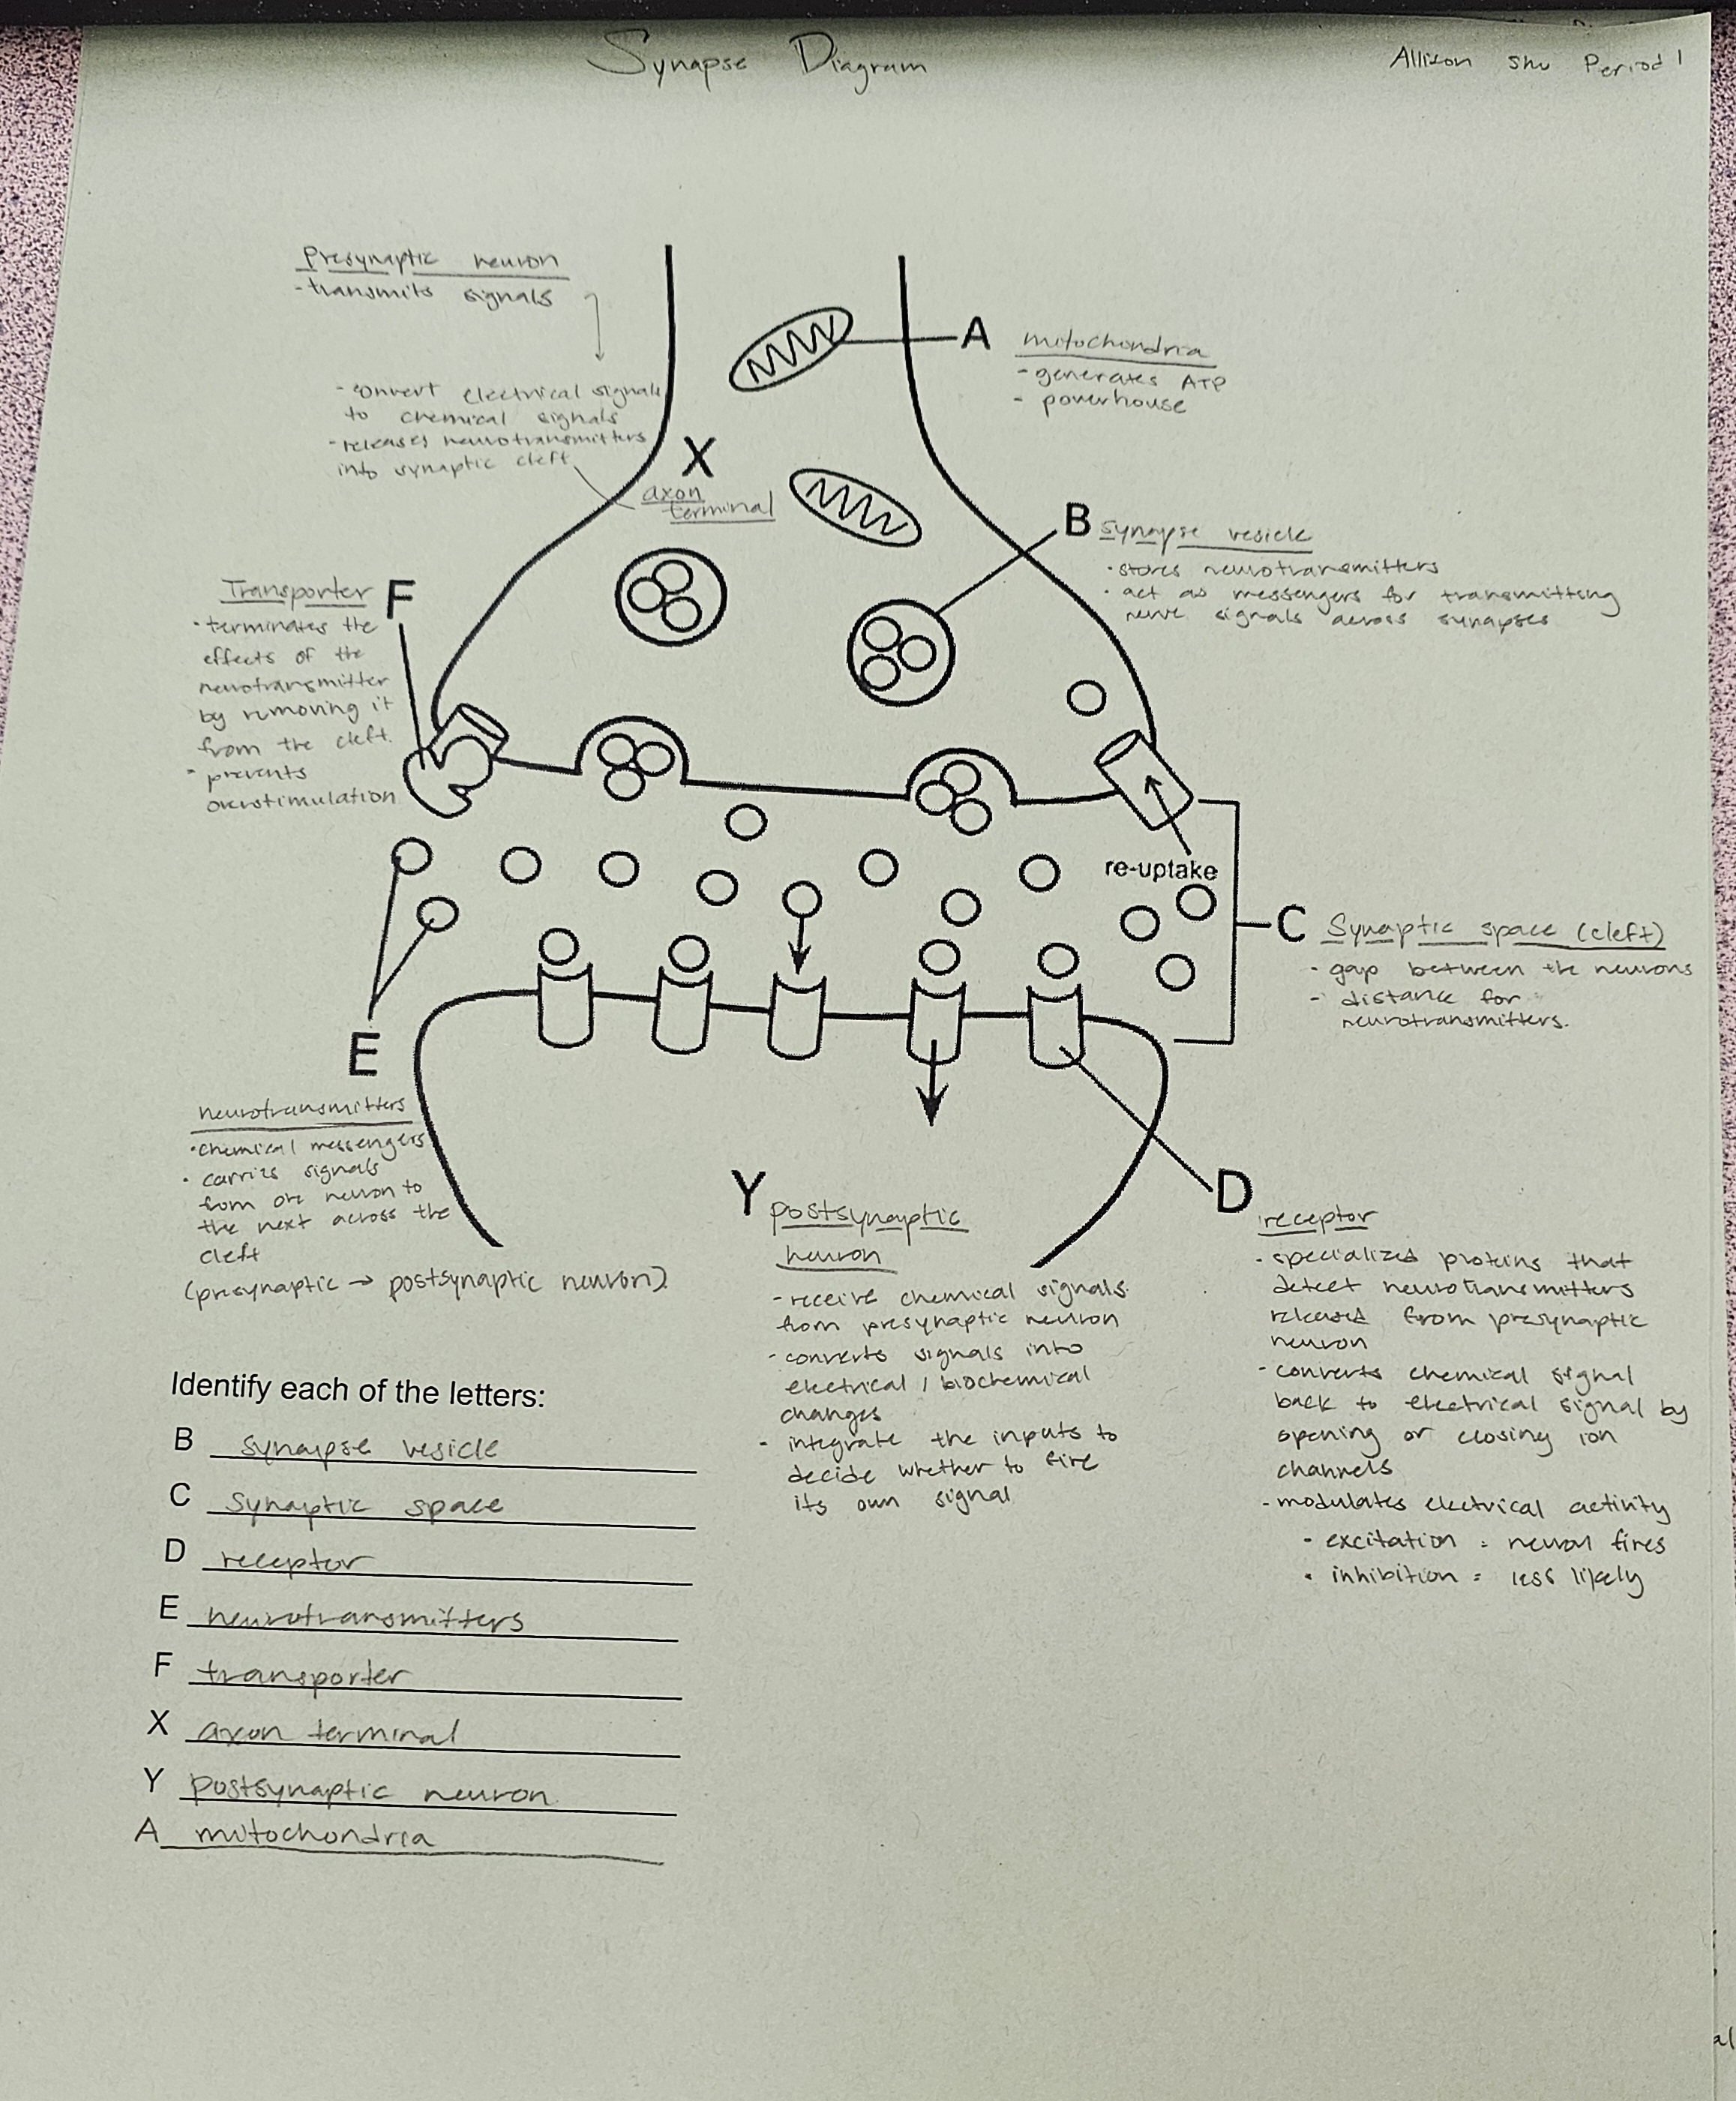 Synapse Diagram
Allison Shu Period 1
Presynaptic neuron
- transmits signals
- convert electrical signals
to chemical signals
- releases neurotransmitters
into synaptic cleft
X
axon
terminal
A
mitochondria
- generates ATP
- powerhouse
B
synapse vesicle
• stores neurotransmitters
• act as messengers for transmitting
nerve signals across synapses
Transporter
F
• terminates the
effects of the
neurotransmitter
by removing it
from the cleft.
• prevents
overstimulation
re-uptake
C
Synaptic space (cleft)
- gap between the neurons
- distance for
neurotransmitters.
E
neurotransmitters
• chemical messengers
• carries signals
from one neuron to
the next across the
cleft
(presynaptic → postsynaptic neuron)
Y
postsynaptic
neuron
- receive chemical signals
from presynaptic neuron
- converts signals into
electrical / biochemical
changes
- integrate the inputs to
decide whether to fire
its own signal
D
receptor
- specialized proteins that
detect neurotransmitters
released from presynaptic
neuron
- converts chemical signal
back to electrical signal by
opening or closing ion
channels
- modulates electrical activity
• excitation = neuron fires
• inhibition = less likely
Identify each of the letters:
B synapse vesicle
C synaptic space
D receptor
E neurotransmitters
F transporter
X axon terminal
Y postsynaptic neuron
A mitochondria